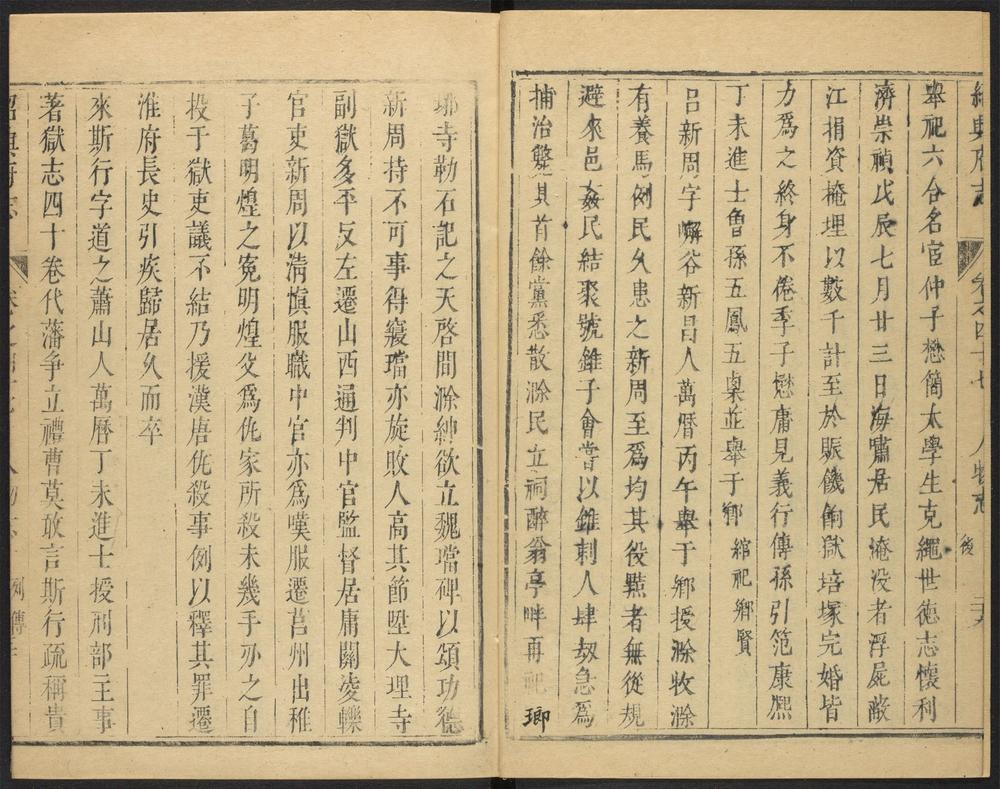 紹興府志 卷之四十七 人物志 後
舉祀六合名宦仲子懋簡太學生克繩世德志懷利
濟崇禎戊辰七月廿三日海嘯居民淹没者浮屍蔽
江捐資掩埋以數千計至於賑饑恤獄培塚完婚皆
力爲之終身不倦季子懋庸見義行傳孫引范康熙
丁未進士曾孫五鳳五臯並舉于鄉 綰祀鄉賢
呂新周字嶰谷新昌人萬曆丙午舉于鄉授滁牧滁
有養馬例民久患之新周至爲均其役黠者無從規
避來邑姦民結聚號錐子會嘗以錐刺人肆刼急爲
捕治斃其首餘黨悉散滁民立祠醉翁亭畔再祀瑯
琊寺勒石記之天啓間滁紳欲立魏璫碑以頌功德
新周持不可事得寢璫亦旋敗人高其節陞大理寺
副獄多平反左遷山西通判中官監督居庸關凌轢
官吏新周以清慎服職中官亦爲嘆服遷莒州出稚
子葛明煌之寃明煌父爲仇家所殺未幾手刃之自
投于獄吏議不結乃援漢唐仇殺事例以釋其罪遷
淮府長史引疾歸居久而卒
來斯行字道之蕭山人萬曆丁未進士授刑部主事
著獄志四十卷代藩爭立禮曹莫敢言斯行疏稱貴
紹興府志 人物志 列傳